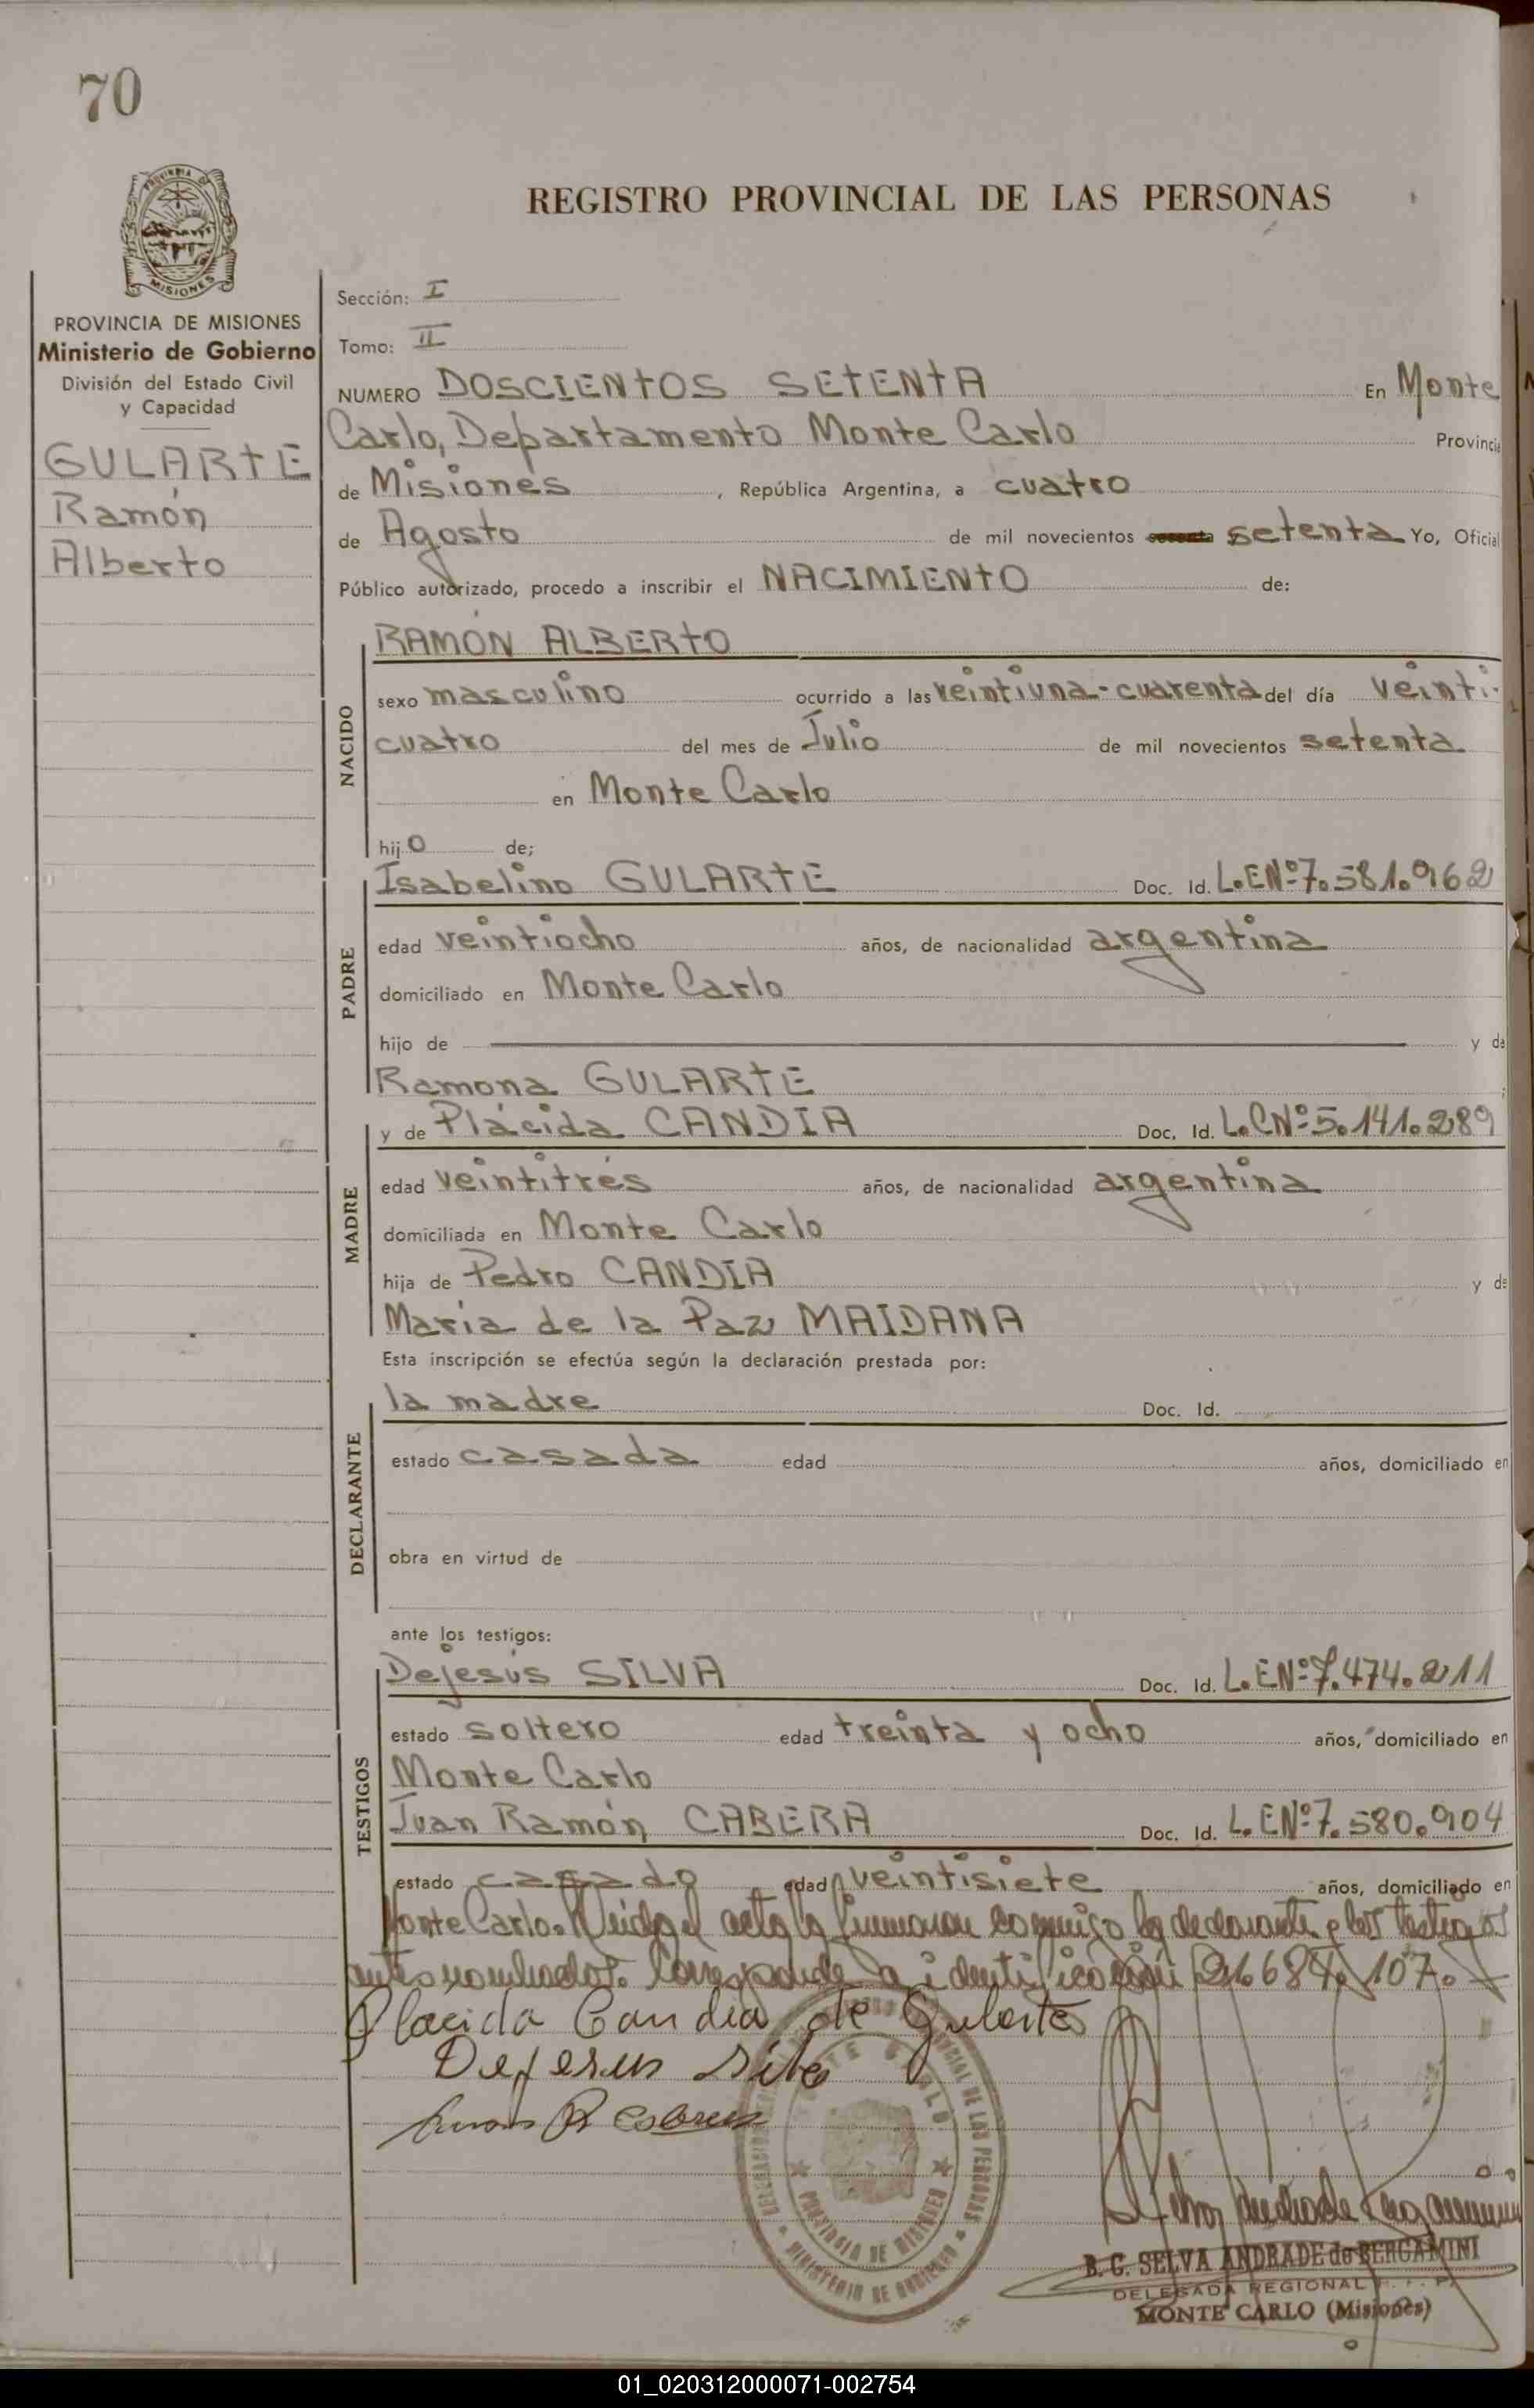 70
REGISTRO PROVINCIAL DE LAS PERSONAS
PROVINCIA
MISIONES
PROVINCIA DE MISIONES
Ministerio de Gobierno
División del Estado Civil
y Capacidad
GULARTE
Ramón
Alberto
Sección: I
Tomo: II
NUMERO DOSCIENTOS SETENTA En Monte
Carlo, Departamento Monte Carlo Provincia
de Misiones, República Argentina, a cuatro
de Agosto de mil novecientos setenta Yo, Oficial
Público autorizado, procedo a inscribir el NACIMIENTO de:
NACIDO
RAMÓN ALBERTO
sexo masculino ocurrido a las veintiuna-cuarenta del día veinti-
cuatro del mes de Julio de mil novecientos setenta
en Monte Carlo
hijo de;
PADRE
Isabelino GULARTE Doc. Id. L.E.Nº 7.581.962
edad veintiocho años, de nacionalidad argentina
domiciliado en Monte Carlo
hijo de y de
Ramona GULARTE ;
MADRE
y de Plácida CANDIA Doc. Id. L.C.Nº 5.141.289
edad veintitrés años, de nacionalidad argentina
domiciliada en Monte Carlo
hija de Pedro CANDIA y de
María de la Paz MAIDANA
Esta inscripción se efectúa según la declaración prestada por:
DECLARANTE
la madre Doc. Id.
estado casada edad años, domiciliado en
obra en virtud de
ante los testigos:
TESTIGOS
Dejesús SILVA Doc. Id. L.E.Nº 7.474.211
estado soltero edad treinta y ocho años, domiciliado en
Monte Carlo
Juan Ramón CABERA Doc. Id. L.E.Nº 7.580.904
estado casado edad veintisiete años, domiciliado en
Monte Carlo. Leída el acta la firmaron conmigo la declarante y los testigos
antes nombrados. Corresponde a identificación 21.687.107.
Placida Candia de Gularte
Dejesus Silva
Juan R Cabrera
MONTE CARLO
PROVINCIA DE MISIONES
MINISTERIO DE GOBIERNO
B. C. SELVA ANDRADE de BERGAMINI
DELEGADA REGIONAL
MONTE CARLO (Misiones)
01_020312000071-002754